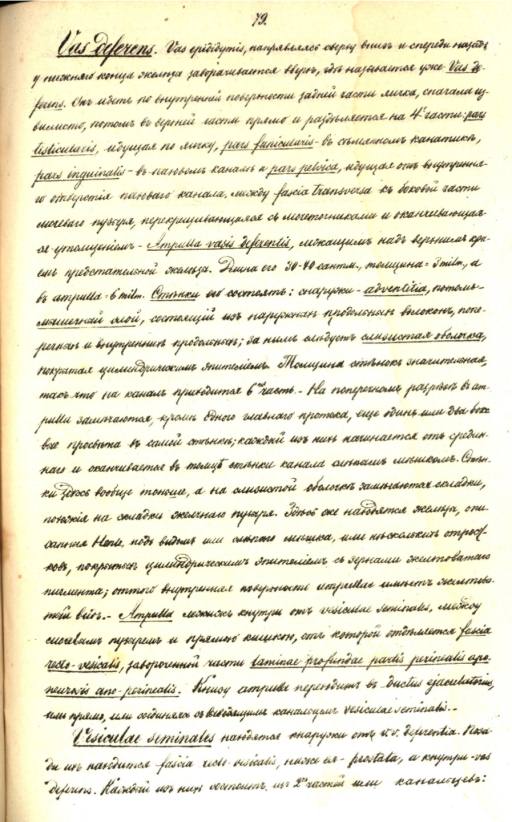 79.
Vas deferens. Vas epididymis, направляясь сверху внизъ и спереди назадъ,
у нижняго конца яичка заворачивается вверхъ, гдѣ называется уже Vas de-
ferens. Онъ идетъ по внутренней поверхности задней части яичка, сначала из-
вилисто, потомъ въ верхней части прямо и раздѣляется на 4 части: pars
testicularis, идущая по яичку, pars funicularis - въ сѣменномъ канатикѣ,
pars inguinalis - въ паховомъ каналѣ и pars pelvica, идущая отъ внутрення-
го отверстія пахового канала, между fascia transversa къ боковой части
мочевого пузыря, перекрещивающаяся съ мочеточниками и оканчивающая-
ся утолщеніемъ - Ampulla vasis deferentis, лежащимъ надъ верхнимъ кра-
емъ предстательной железы. Длина его 30-40 сантм., толщина - 3 milm., а
въ ampulla - 6 milm. Стѣнки его состоятъ: снаружи - adventitia, потомъ-
мышечный слой, состоящій изъ наружныхъ продольныхъ волоконъ, попе-
речныхъ и внутреннихъ продольныхъ; за нимъ слѣдуетъ слизистая оболочка,
покрытая цилиндрическимъ эпителіемъ. Толщина стѣнокъ значительная,
такъ что на каналъ приходится 6 часть. - На поперечномъ разрѣзѣ въ am-
pulla замѣчаются, кромѣ одного главнаго протока, еще одинъ или два боко-
вые просвѣта въ самой стѣнкѣ; каждый изъ нихъ начинается отъ средин-
наго и оканчивается въ толщѣ стѣнки канала слѣпымъ мѣшкомъ. Стѣн-
ки здѣсь вообще тоньше, а на слизистой оболочкѣ замѣчаются складки,
похожія на складки желчнаго пузыря. Здѣсь же находятся железы, опи-
санныя Henle, подъ видомъ или слѣпого мѣшка, или нѣсколькихъ отрост-
ковъ, покрытыхъ цилиндрическимъ эпителіемъ съ зернами желтоватаго
пигмента; оттого внутренняя поверхность ampullae имѣетъ желтова-
тый видъ. - Ampulla лежитъ кнутри отъ vesiculae seminales, между
мочевымъ пузыремъ и прямою кишкою, отъ которой отдѣляется fascia
recto-vesicalis, заворотной части laminae profundae partis perinealis apo-
neurosis ano-perinealis. Книзу ampulla переходитъ въ ductus ejaculatorius,
или прямо, или соединяясь съ выводящимъ канальцемъ vesiculae seminalis. -
Vesiculae seminales находятся кнаружи отъ v.v. deferentia. Поза-
ди ихъ находится fascia recto-vesicalis, ниже ея - prostata, а кнутри - vas
deferens. Каждый изъ нихъ состоитъ изъ 2 частей или канальцевъ: